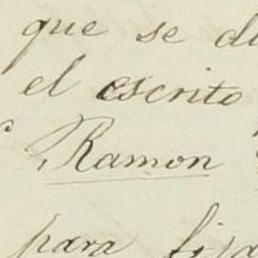 que se di
el escrito
Ramon
para fija